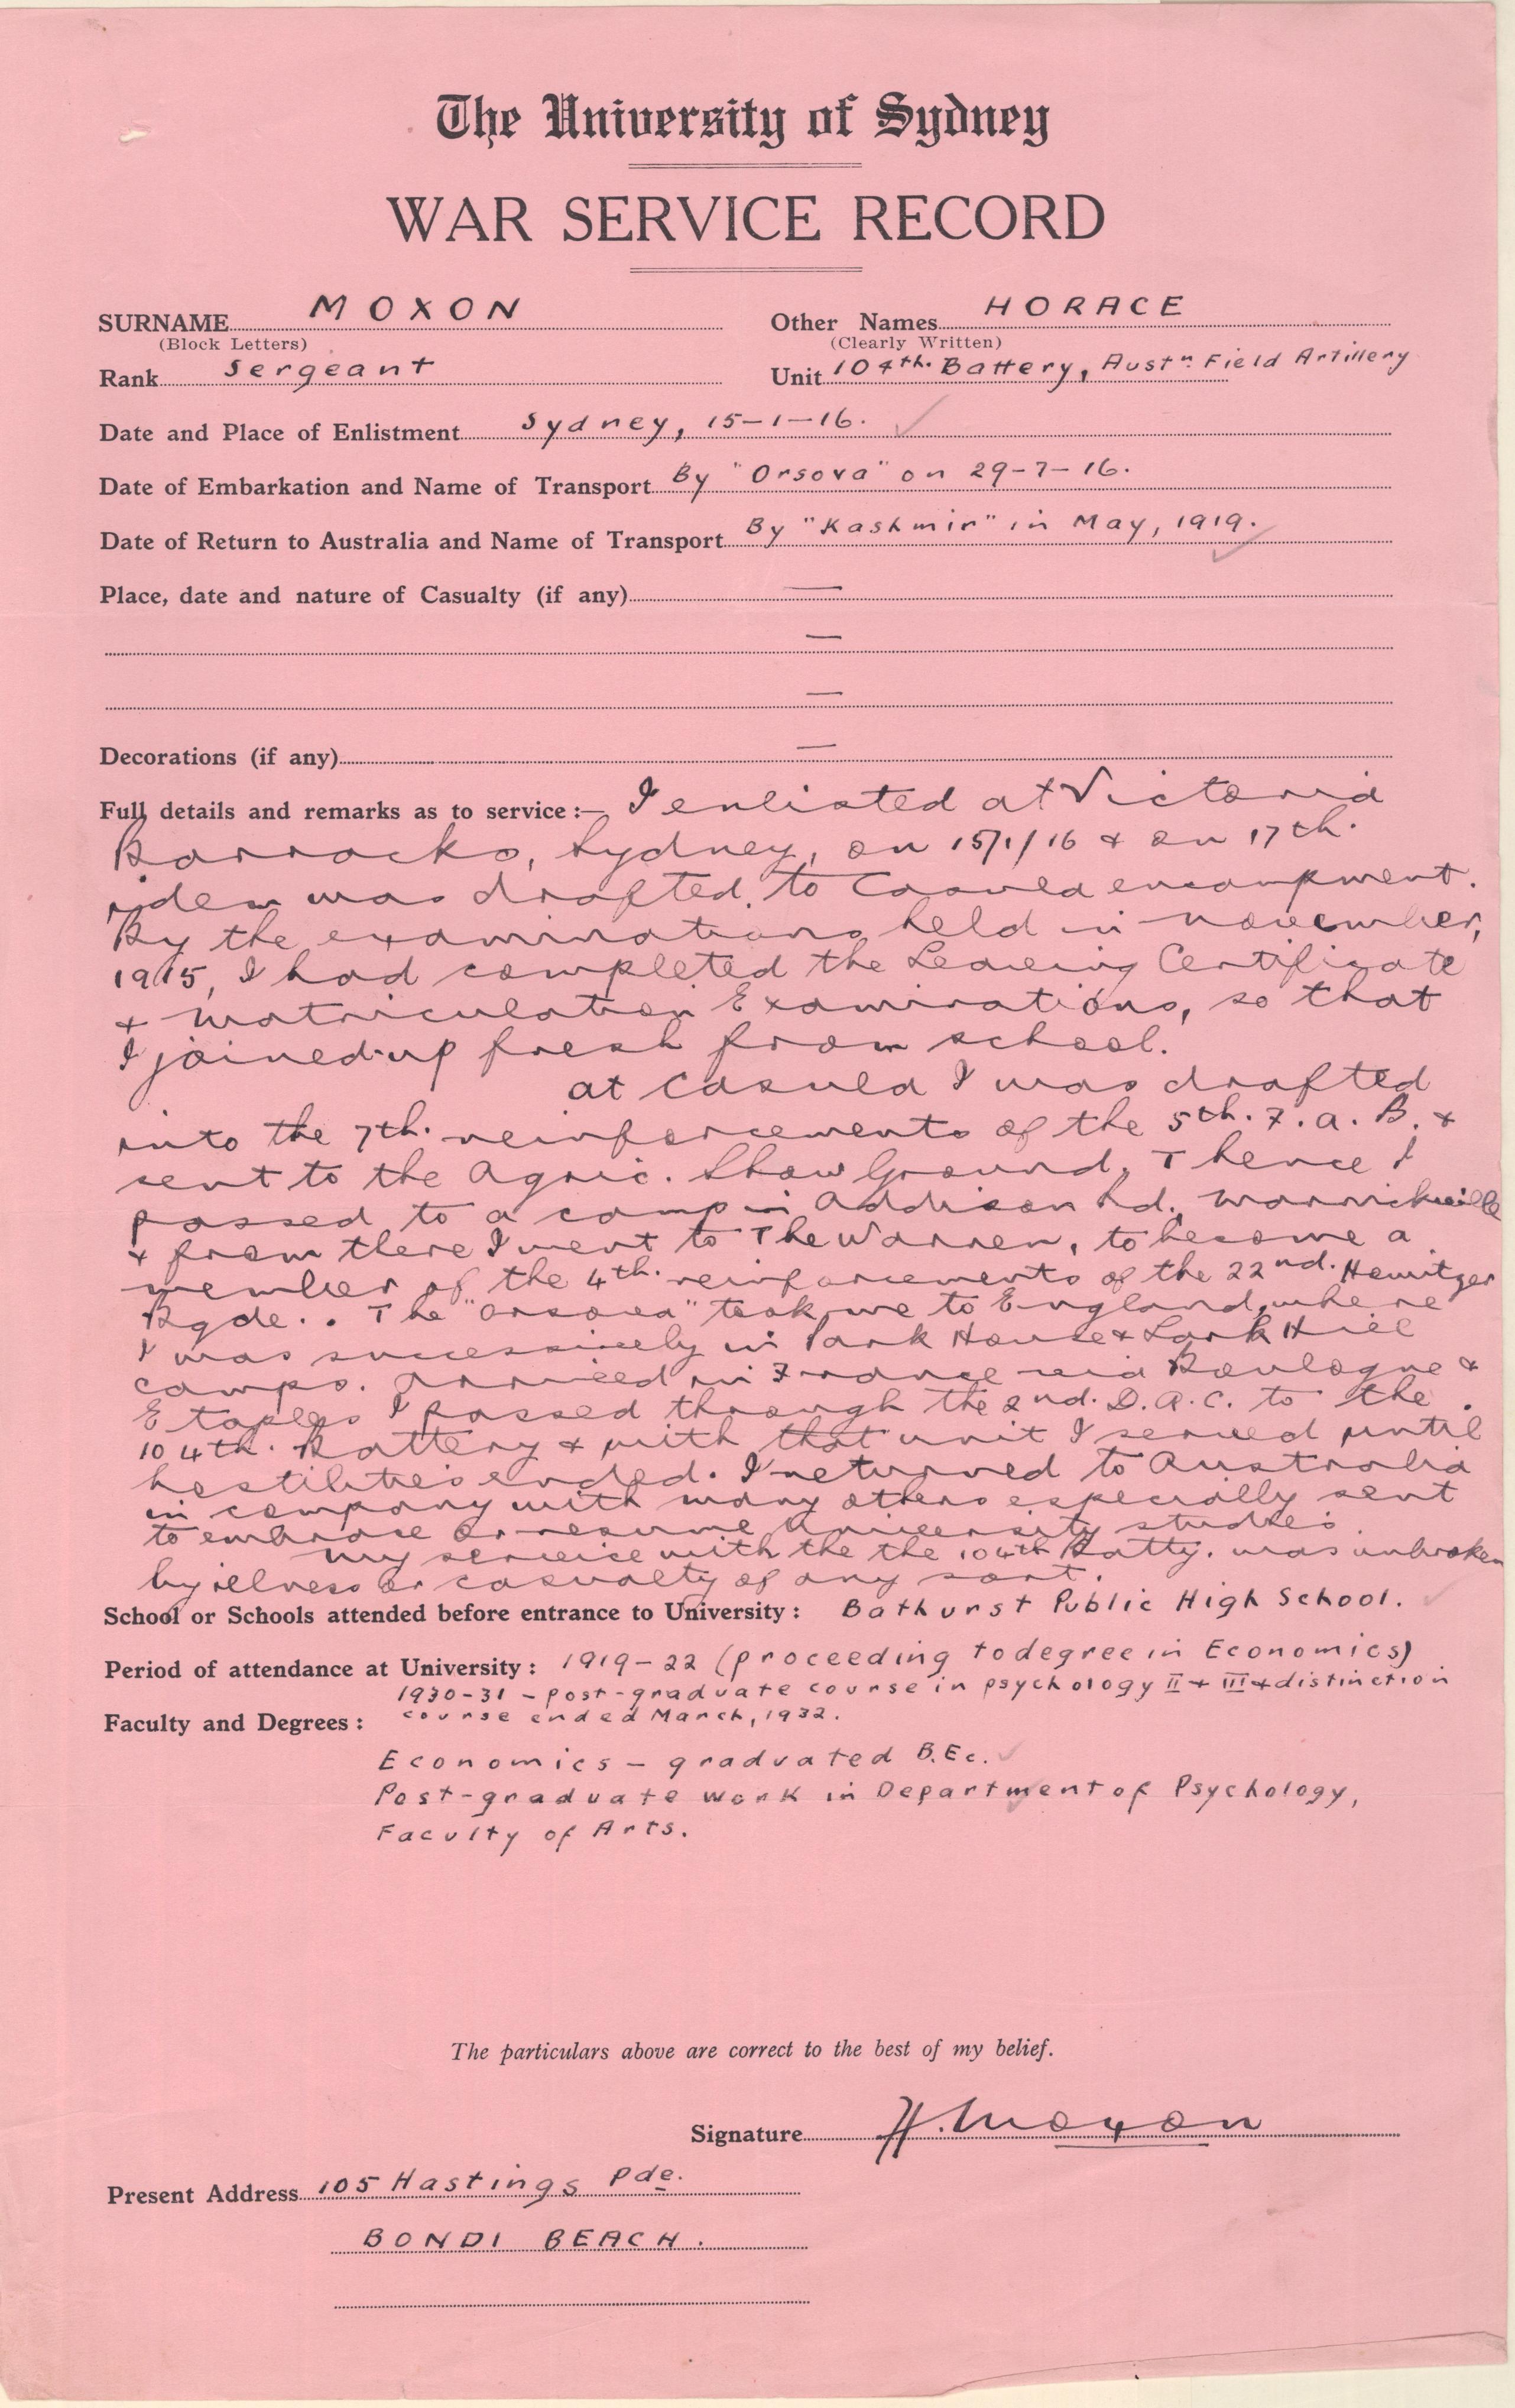 The University of Sydney
WAR SERVICE RECORD
SURNAME MOXON Other Names HORACE
(Block Letters) (Clearly Written)
Rank Sergeant Unit 104th. Battery, Austn. Field Artillery
Date and Place of Enlistment Sydney, 15-1-16.
Date of Embarkation and Name of Transport By "Orsova" on 29-7-16.
Date of Return to Australia and Name of Transport By "Kashmir" in May, 1919.
Place, date and nature of Casualty (if any) —
—
—
Decorations (if any) —
Full details and remarks as to service:— I enlisted at Victoria
Barracks, Sydney, on 15/1/16 & on 17th.
idem was drafted to Casula encampment.
By the examinations held in November,
1915, I had completed the Leaving Certificate
& Matriculation Examinations, so that
I joined-up fresh from school.
At Casula I was drafted
into the 7th. reinforcements of the 5th. F.A.B. &
sent to the Agric. Show Ground. Thence I
passed to a camp in Addison Rd., Marrickville
& from there I went to The Warren, to become a
member of the 4th. reinforcements of the 22nd. Howitzer
Bgde.. The "Orsova" took me to England, where
I was successively in Park House & Lark Hill
camps. Arrived in France via Boulogne &
Etaples I passed through the 2nd. D.A.C. to the
104th. Battery & with that unit I served until
hostilities ended. I returned to Australia
in company with many others especially sent
to embrace or resume University studies.
My service with the the 104th Batty. was unbroken
by illness or casualty of any sort.
School or Schools attended before entrance to University: Bathurst Public High School.
Period of attendance at University: 1919-22 (proceeding to degree in Economics)
1930-31 - post-graduate course in psychology II & III & distinction
Faculty and Degrees: course ended March, 1932.
Economics - graduated B.Ec.
Post-graduate work in Department of Psychology,
Faculty of Arts.
The particulars above are correct to the best of my belief.
Signature H. Moxon
Present Address 105 Hastings Pde.
BONDI BEACH.